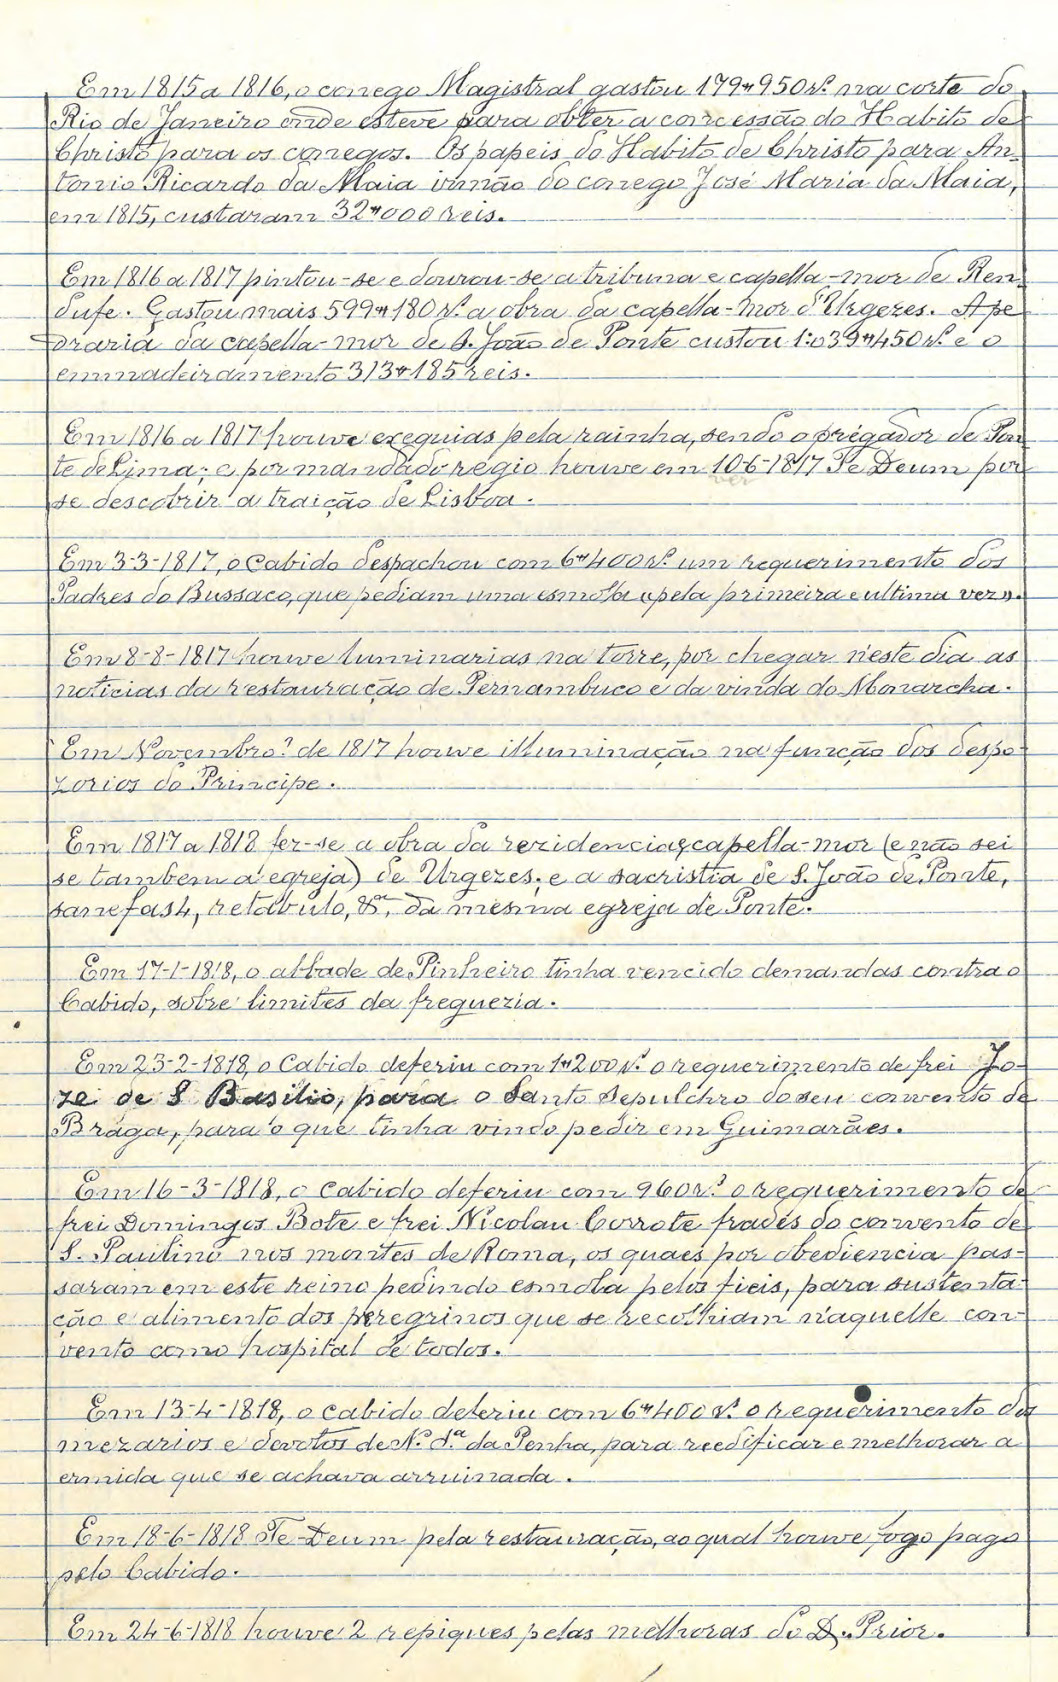 Em 1815 a 1816, o conego Magistral gastou 179$950 rs. na corte do
Rio de Janeiro onde esteve para obter a concessão do Habito de
Christo para os conegos. Os papeis do Habito de Christo para An-
tonio Ricardo da Maia irmão do conego José Maria da Maia,
em 1815, custaram 32$000 reis.
Em 1816 a 1817 pintou-se e dourou-se a tribuna e capella-mor de Ren-
dufe. Gastou mais 599$180 rs. a obra da capella-mor d'Urgezes. A pe
draria da capella-mor de S. João de Ponte custou 1:039$450 rs. e o
emmadeiramento 313$185 reis.
Em 1816 a 1817 houve exequias pela rainha, sendo o prégador de Pon
te de Lima; e por mandado regio houve em 10-6-1817 Te Deum por
ver
se descobrir a traição de Lisboa.
Em 3-3-1817, o Cabido despachou com 6$400 rs. um requerimento dos
Padres do Bussaco, que pediam uma esmola «pela primeira e ultima vez».
Em 8-8-1817 houve luminarias na torre, por chegar n'este dia as
noticias da restauração de Pernambuco e da vinda do Monarcha.
Em Novembro? de 1817 houve illuminação na função dos despo-
zorios do Principe.
Em 1817 a 1818 fez-se a obra da rezidencia, capella-mor (e não sei
se tambem a egreja) de Urgezes; e a sacristia de S. João de Ponte,
sanefas 4, retabulo, &ª, da mesma egreja de Ponte.
Em 17-1-1818, o abbade de Pinheiro tinha vencido demandas contra o
Cabido, sobre limites da freguezia.
Em 23-2-1818, o Cabido deferiu com 1$200 rs. o requerimento de frei Jo-
zé de S Basilio, para o Santo Sepulchro do seu convento de
Braga, para o que tinha vindo pedir em Guimarães.
Em 16-3-1818, o Cabido deferiu com 960 rs. o requerimento de
frei Domingos Bote e frei Nicolau Corrote frades do convento de
S. Paulino nos montes de Roma, os quaes por obediencia pas-
saram em este reino pedindo esmola pelos fieis, para sustenta-
ção e alimento dos peregrinos que se recolhiam n'aquelle con-
vento como hospital de todos.
Em 13-4-1818, o Cabido deferiu com 6$400 rs. o requerimento dos
mezarios e devotos de N. S.ª da Penha, para reedificar e melhorar a
ermida que se achava arruinada.
Em 18-6-1818 Te-Deum pela restauração, ao qual houve fogo pago
pelo Cabido.
Em 24-6-1818 houve 2 repiques pelas melhoras do D. Prior.